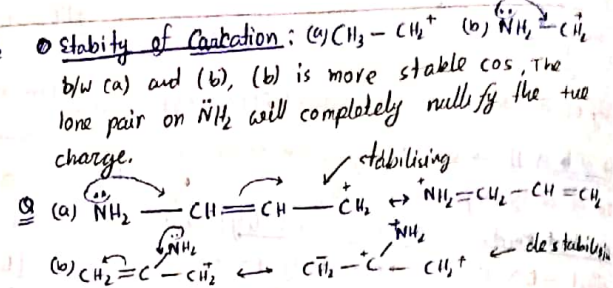 Stabity of Carbcation : (a) CH₃ – CH₂⁺ (b) N̈H₂ – C⁺H₂
b/w (a) and (b), (b) is more stable cos, The
lone pair on N̈H₂ will completely nullify the +ve
charge.
stabilising
Q (a) N̈H₂ — CH = CH — C⁺H₂ ↔ ⁺NH₂ = CH₂ – CH = CH₂
N̈H₂ ⁺NH₂
(b) CH₂ = C – CH₂⁺ ↔ C⁻H₂ – C⁺ – CH₂⁺ ← destabilisin